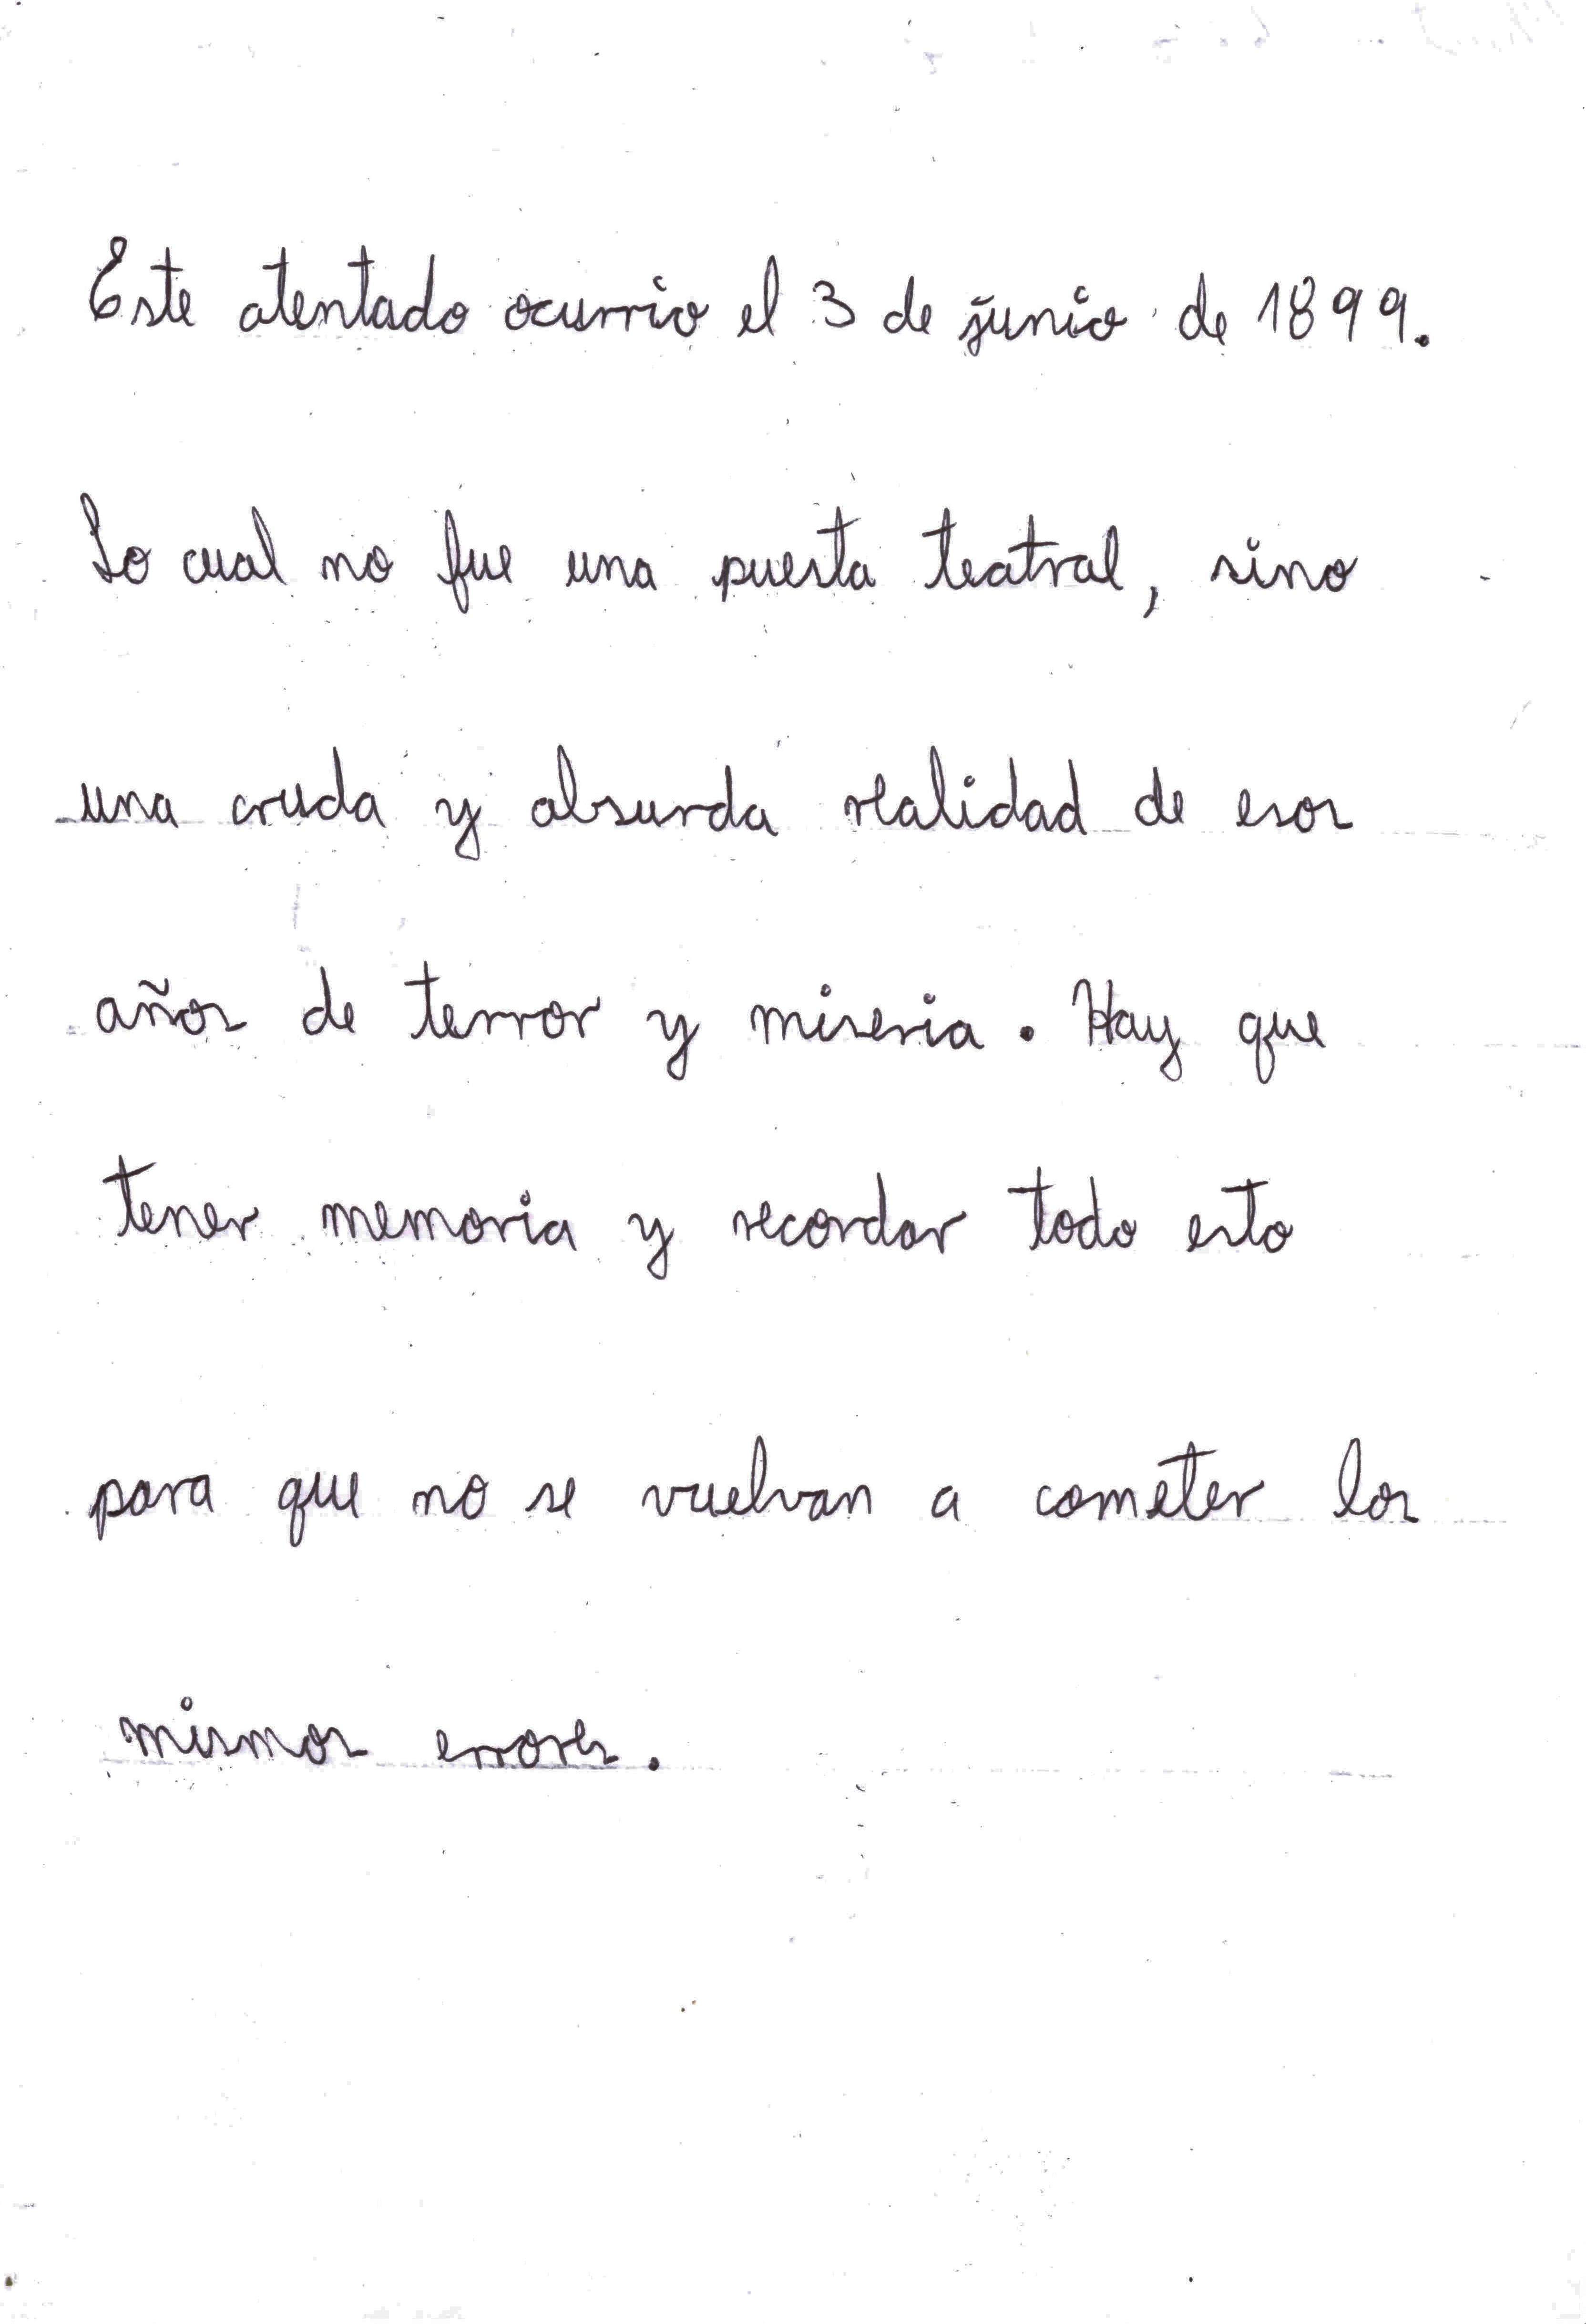 Este atentado ocurrio el 3 de junio de 1899.
Lo cual no fue una puesta teatral, sino
una cruda y absurda realidad de esos
años de terror y miseria. Hay que
tener memoria y recordar todo esto
para que no se vuelvan a cometer los
mismos errores.